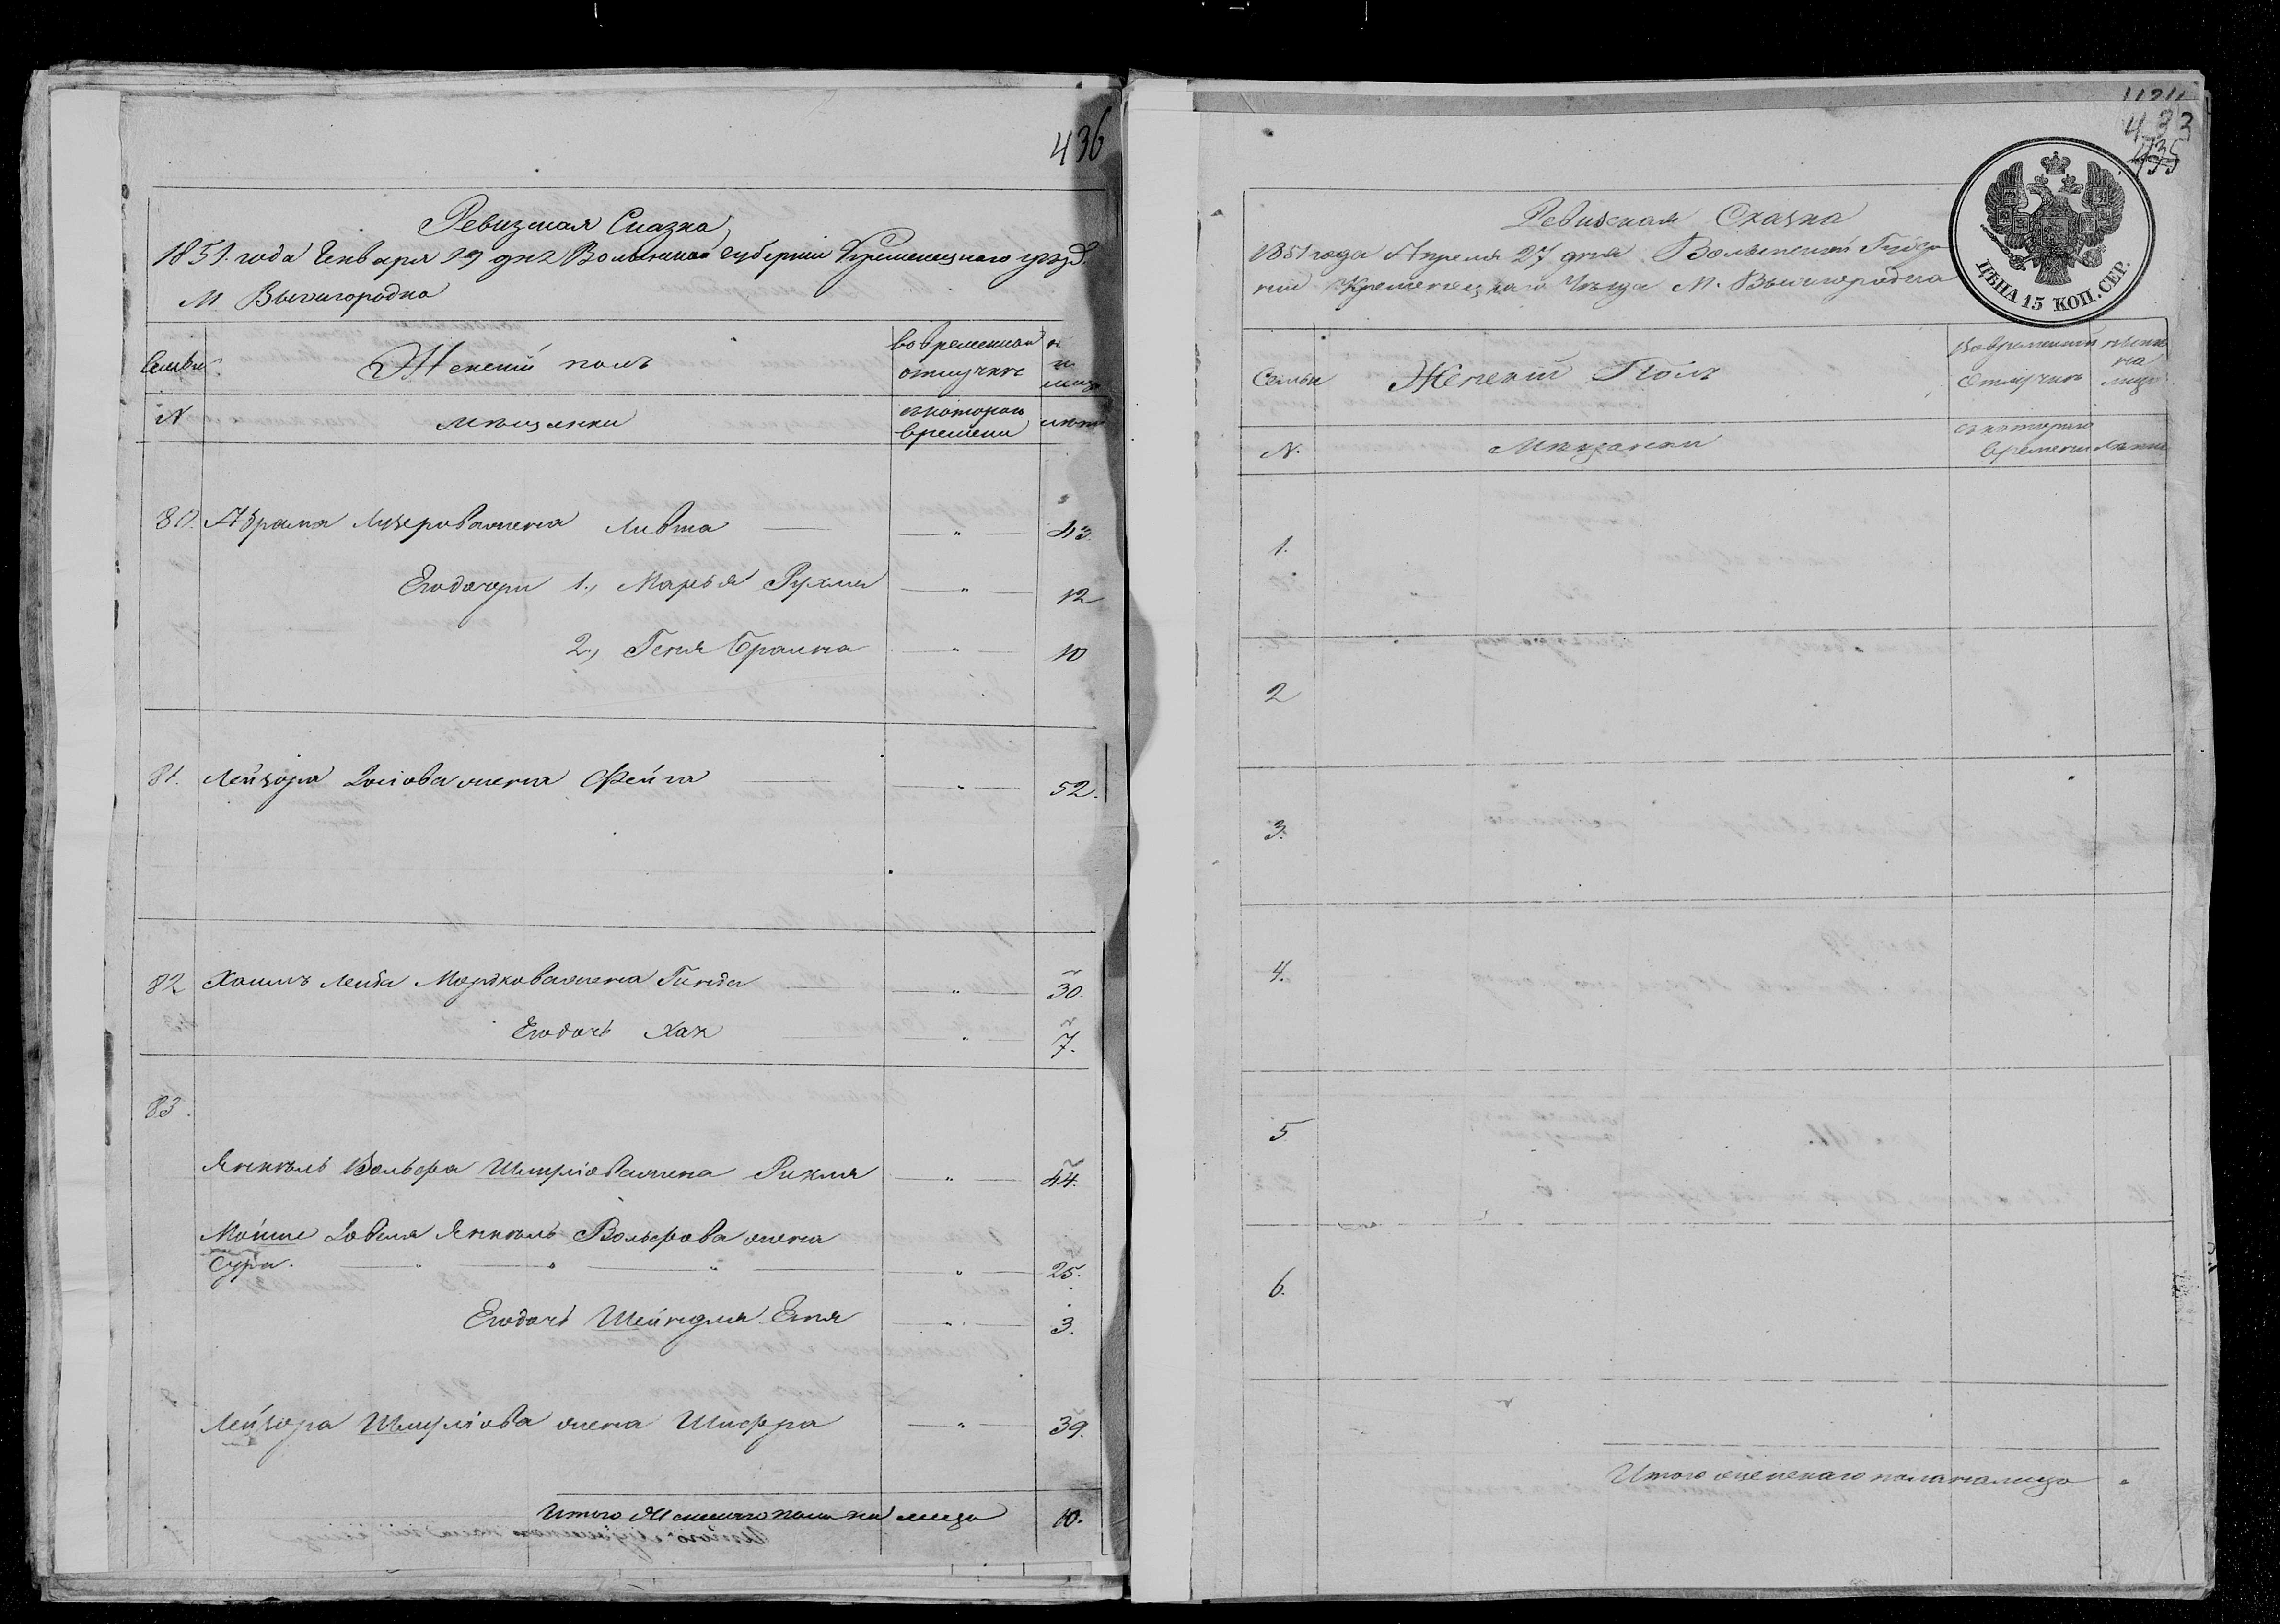 436
Ревизская Сказка
1851. года Генваря 19 дня Волынской губернии Кременецкаго уезд.
М Вышгородка
Семьи. Женский полъ во временной отлучкѣ на лицо
N мѣщанки съ котораго времени лѣта
80. Абрама Лузерова жена Ливша — „ — 43
Его дочери 1., Марьям Рухля — „ — 12
2., Геня Браина — „ — 10
81. Лейзора Іосiова жена Фейга — „ — 52.
82 Хаимъ Лейба Мордкова жена Гинда — „ — 30.
Его дочь Хая — „ — 7.
83.
Янкель Вольфа Шмулiова жена Рихля — „ — 44.
Мойше Довида Янкель Вольфова жена
Сура. — „ — 25.
Его дочь Шейндля Еня — „ — 3.
Лейзора Шмулiова жена Шифра — „ — 39.
Итого Женскаго пола на лицо 10.
433
435
ЦѢНА 15 КОП. СЕР.
Ревизская Сказка
1851 года Апреля 27 дня Волынской Губер
нии Кременецкаго Уезда М. Вышгородка
Семьи Женский Полъ Во временной Отлучкѣ на лицо
N. Мѣщанки съ котораго времени Лѣта
1.
2
3.
4.
5
6.
Итого женскаго пола на лицо „